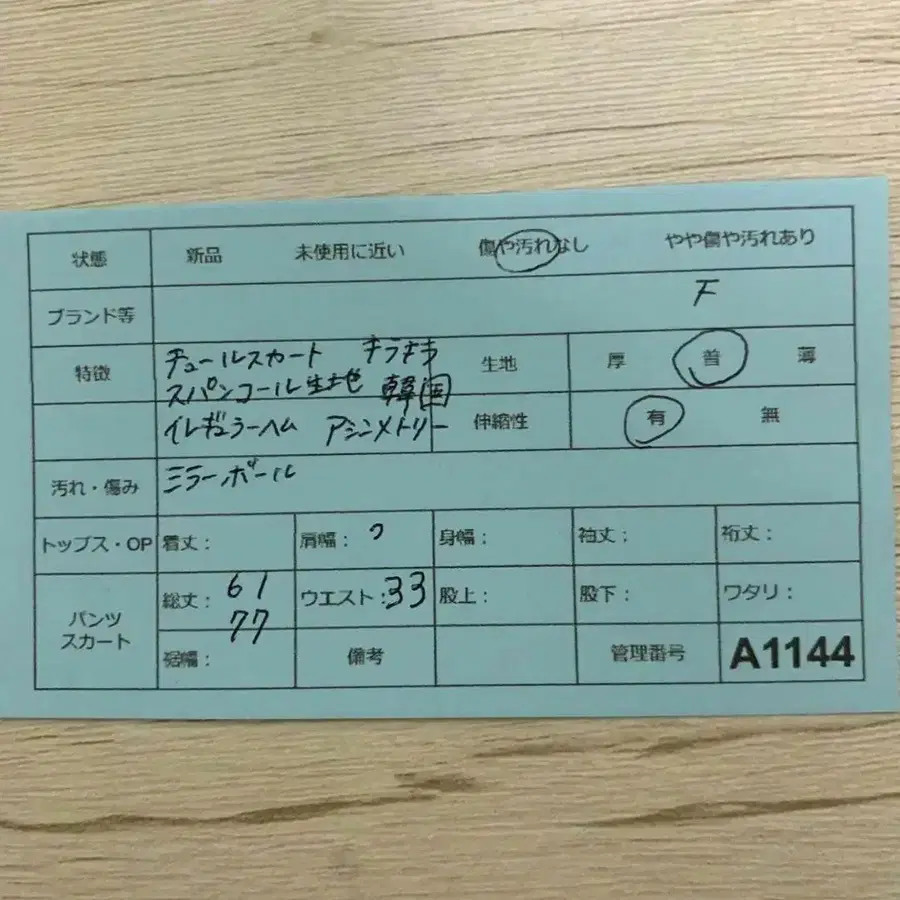 状態 新品 未使用に近い 傷や汚れなし やや傷や汚れあり
ブランド等 F
特徴 チュールスカート キラキラ 生地 厚 普 薄
スパンコール生地 韓国
イレギュラーヘム アシンメトリー 伸縮性 有 無
汚れ・傷み ミラーボール
トップス・OP 着丈: 肩幅: 身幅: 袖丈: 裄丈:
パンツ
スカート
総丈: 61 ウエスト:33 股上: 股下: ワタリ:
77
裾幅: 備考 管理番号 A1144